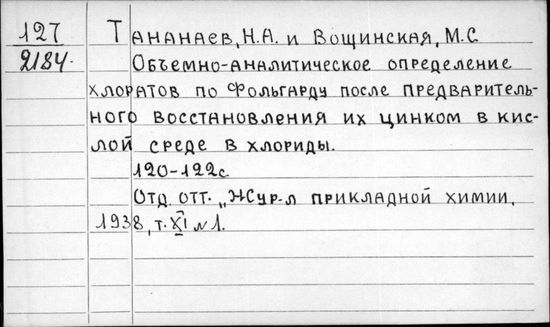 127 Тананаев, Н.А. и Вощинская, М.С
2184. Объемно-аналитическое определение
хлоратов по Фольгарду после предваритель-
ного восстановления их цинком в кис-
лой среде в хлориды.
120-122с.
Отд. отт. „Жур-л прикладной химии,
1938, т. XI №1.